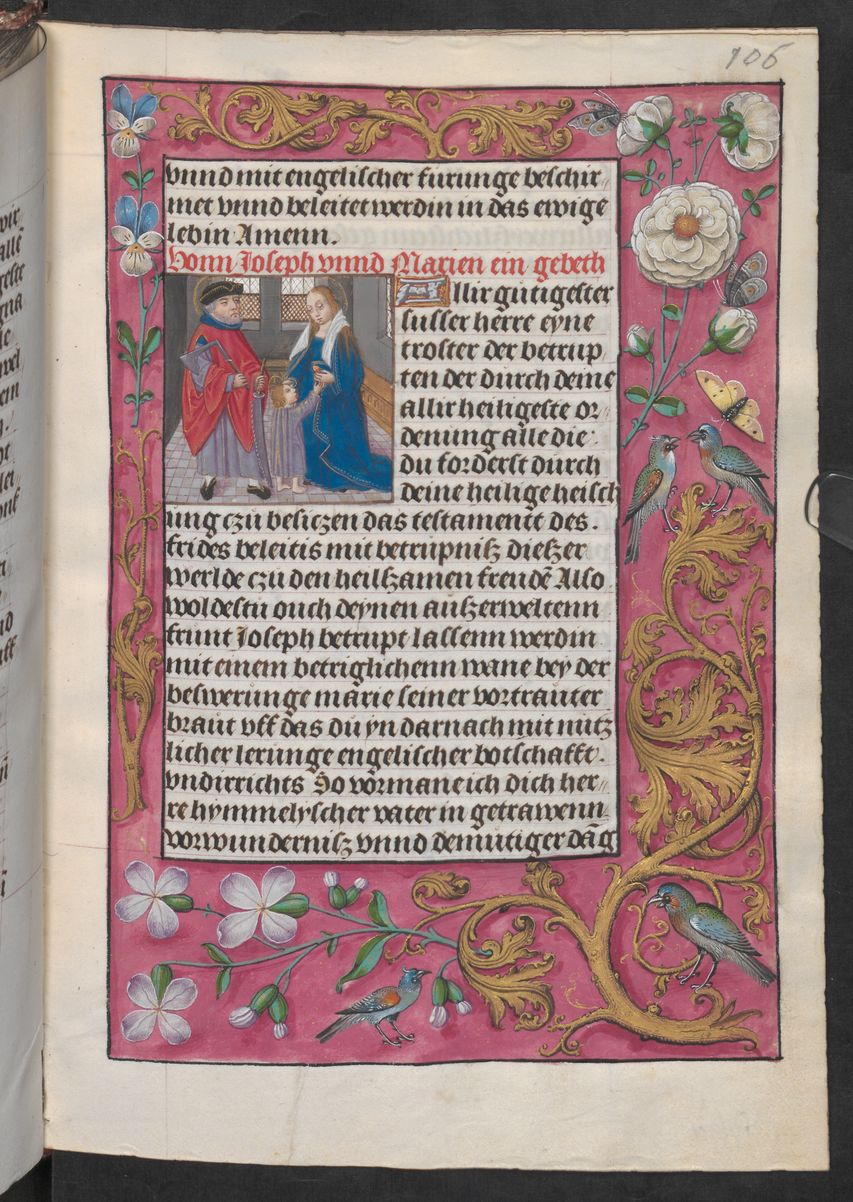 106
vnnd mit engelischer furunge beschir
met vnnd beleitet werdin in das ewige
lebin Amenn.
Vonn Joseph vnnd Marien ein gebeth
Allir gutigester
susser herre eyne
troster der betrup
ten der durch deine
allir heiligeste or
denung alle die
du forderst durch
deine heilige heisch
ung czu besiczen das testamentt des.
frides beleitis mit betrupnisz dieszer
werlde czu den heilszamen freudē Also
woldestu ouch deynen auszerweltenn
frunt Joseph betrupt lassenn werdin
mit einem betriglichenn wane bey der
beswerunge marie seiner vortrauter
braut vff das du yn darnach mit nutz
licher lerunge engelischer botschafft.
vndirrichts So vormane ich dich her
re hymmelyscher vater in getrawenn
vorwundernisz vnnd demutiger dāg